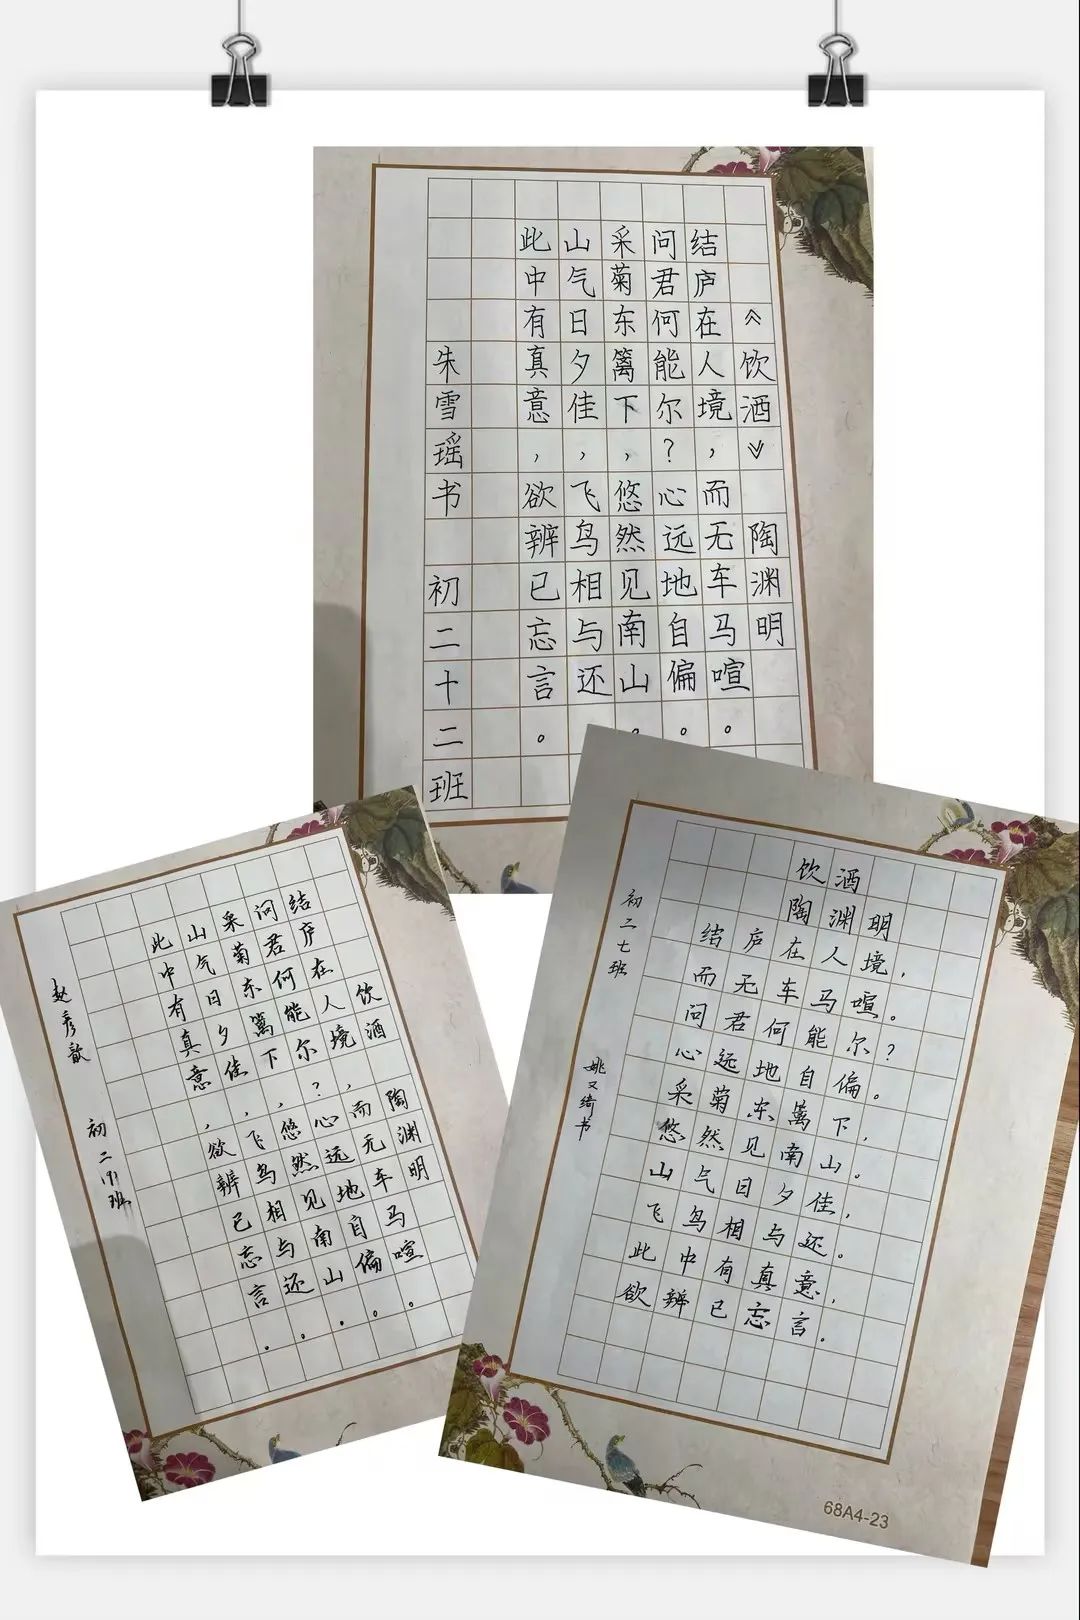 《饮酒》 陶渊明
结庐在人境,而无车马喧。
问君何能尔?心远地自偏。
采菊东篱下,悠然见南山。
山气日夕佳,飞鸟相与还
此中有真意,欲辨已忘言。
朱雪瑶书 初二十二班
饮酒 陶渊明
结庐在人境,而无车马喧。
问君何能尔?心远地自偏。
采菊东篱下,悠然见南山。
山气日夕佳,飞鸟相与还。
此中有真意,欲辨已忘言。
赵彦歆 初二班
饮酒
陶渊明
结庐在人境,
而无车马喧。
问君何能尔?
心远地自偏。
采菊东篱下,
悠然见南山。
山气日夕佳,
飞鸟相与还。
此中有真意,
欲辨已忘言。
初二七班 姚又绮书
68A4-23